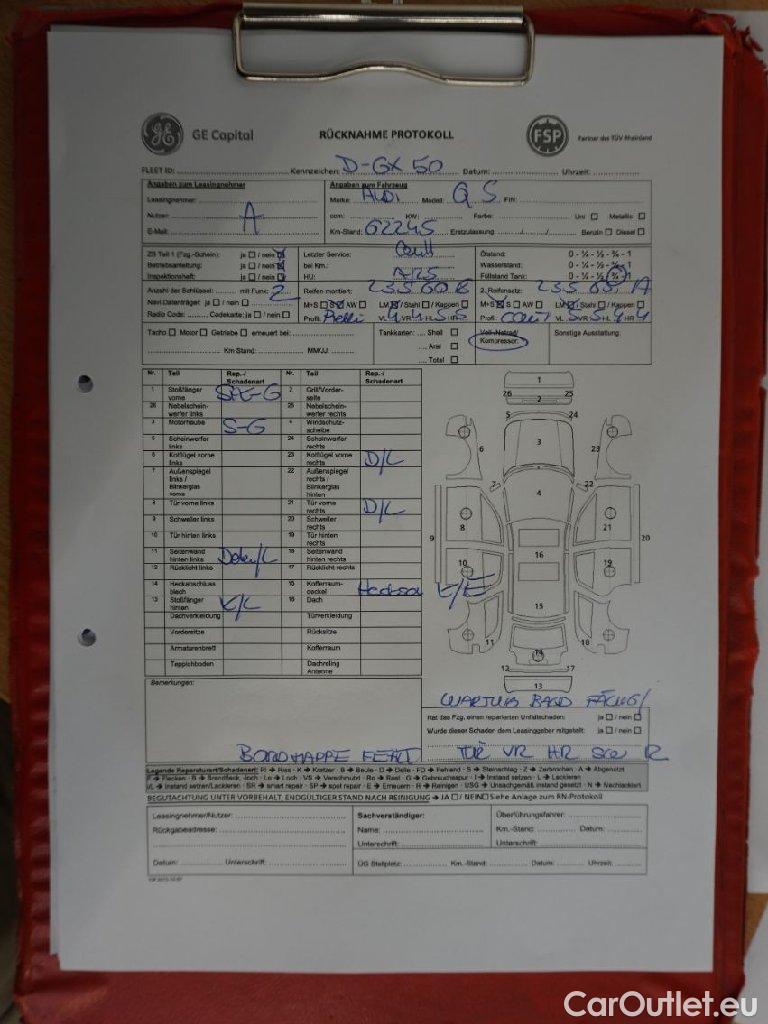 GE Capital
RÜCKNAHME PROTOKOLL
FSP
Partner des TÜV Rheinland
FLEET ID: Kennzeichen: D-GX 50 Datum: Uhrzeit:
Angaben zum Leasingnehmer
Angaben zum Fahrzeug
Leasingnehmer:
Marke: AUDI Model: Q 5 FIN:
Nutzer: A
ccm: KW: Farbe: Uni Metallic
E-Mail:
Km-Stand: 62245 Erstzulassung Benzin Diesel
ZB Teil 1 (Fzg.-Schein): ja / nein
Letzter Service:
Ölstand: 0 - ¼ - ½ - ¾ - 1
Betriebsanleitung: ja / nein
bei Km.:
Wasserstand: 0 - ¼ - ½ - ¾ - 1
Inspektionsheft: ja / nein
HU:
Füllstand Tank: 0 - ¼ - ½ - ¾ - 1
Anzahl der Schlüssel: mit Funk: 2
Reifen montiert: 235 60 18
2. Reifensatz: 235 65 17
Navi Datenträger: ja / nein
M+S S AW LM / Stahl / Kappen
M+S S AW LM / Stahl / Kappen
Radio Code: Cadekarte: ja / nein
Profil:
Profil:
Tacho Motor Getriebe erneuert bei:
Km Stand: MM/JJ:
Tankkarten: Shell
Aral
Total
Voll-/Notrad/
Kompressor:
Sonstige Ausstattung:
Nr. Teil Rep.-/ Schadenart Nr. Teil Rep.-/ Schadenart
1 Stoßfänger vorne 2 Grill/Vorderseite
26 Nebelscheinwerfer links 25 Nebelscheinwerfer rechts
3 Motorhaube S-G 4 Windschutzscheibe
5 Scheinwerfer links 24 Scheinwerfer rechts
6 Kotflügel vorne links 23 Kotflügel vorne rechts D/L
7 Außenspiegel links / Blinkerglas vorne 22 Außenspiegel rechts / Blinkerglas hinten
8 Tür vorne links 21 Tür vorne rechts D/L
9 Schweller links 20 Schweller rechts
10 Tür hinten links 19 Tür hinten rechts
11 Seitenwand hinten links 18 Seitenwand hinten rechts
12 Rücklicht links 17 Rücklicht rechts
14 Heckabschluss blech 15 Kofferraumdeckel
13 Stoßfänger hinten K/L 16 Dach
Dachverkleidung Türverkleidung
Vordersitze Rücksitze
Armaturenbrett Kofferraum
Teppichboden Dachreling Antenne
1
26 2 25
5 24
6 3 23
7 22
4
9 8 21 20
10 16 19
15
11 14 18
12 17
13
Bemerkungen:
WARTUNG BALD FÄLLIG/
Hat das Fzg. einen reparierten Unfallschaden: ja / nein
Wurde dieser Schaden dem Leasinggeber mitgeteilt: ja / nein
BORDMAPPE FEHLT TÜR VR HR
Legende Reparaturart/Schadenart: RI → Riss - K → Kratzer - B → Beule - D → Delle - FD → Fehlend - S → Steinschlag - Z → Zerbrochen - A → Abgenutzt
F → Flecken - B → Brandfleck, -loch - Lo → Loch - VS → Verschmutzt - Ro → Rost - G → Gebrauchsspur - I → Instand setzen - L → Lackieren
I/L → Instand setzen/Lackieren - SR → smart repair - SP → spot repair - E → Erneuern - R → Reinigen - USG → Unsachgemäß instand gesetzt - N → Nachlackiert
BEGUTACHTUNG UNTER VORBEHALT. ENDGÜLTIGER STAND NACH REINIGUNG → JA / NEIN Siehe Anlage zum RN-Protokoll
Leasingnehmer/Nutzer:
Sachverständiger:
Überführungsfahrer:
Rückgabeadresse:
Name:
Km.-Stand: Datum:
Unterschrift:
Unterschrift:
Datum: Unterschrift:
ÜG Stellplatz: Km.-Stand: Datum: Uhrzeit:
CarOutlet.eu